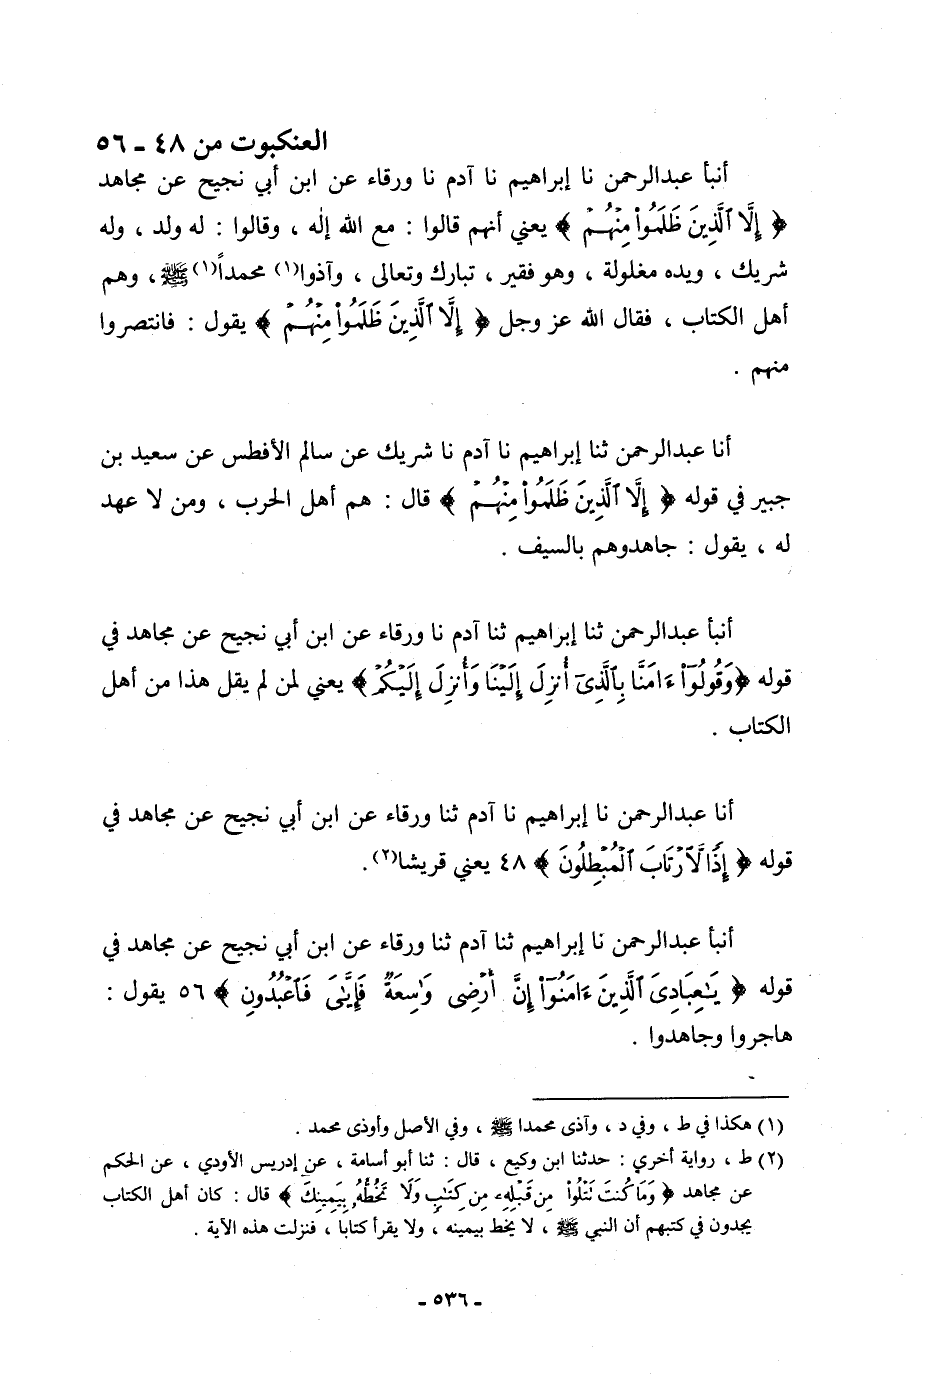 العنكبوت من ٤٨ ـ ٥٦
أنبأ عبدالرحمن نا إبراهيم نا آدم نا ورقاء عن ابن أبي نجيح عن مجاهد
﴿ إِلَّا ٱلَّذِينَ ظَلَمُوا۟ مِنْهُمْ ﴾ يعني أنهم قالوا : مع الله إلٰه ، وقالوا : له ولد ، وله
شريك ، ويده مغلولة ، وهو فقير ، تبارك وتعالى ، وآذوا(١) محمداً(١) ﷺ ، وهم
أهل الكتاب ، فقال الله عز وجل ﴿ إِلَّا ٱلَّذِينَ ظَلَمُوا۟ مِنْهُمْ ﴾ يقول : فانتصروا
منهم .
أنا عبدالرحمن ثنا إبراهيم نا آدم نا شريك عن سالم الأفطس عن سعيد بن
جبير في قوله ﴿ إِلَّا ٱلَّذِينَ ظَلَمُوا۟ مِنْهُمْ ﴾ قال : هم أهل الحرب ، ومن لا عهد
له ، يقول : جاهدوهم بالسيف .
أنبأ عبدالرحمن ثنا إبراهيم ثنا آدم نا ورقاء عن ابن أبي نجيح عن مجاهد في
قوله ﴿وَقُولُوٓا۟ ءَامَنَّا بِٱلَّذِىٓ أُنزِلَ إِلَيْنَا وَأُنزِلَ إِلَيْكُمْ﴾ يعني لمن لم يقل هذا من أهل
الكتاب .
أنا عبدالرحمن نا إبراهيم نا آدم ثنا ورقاء عن ابن أبي نجيح عن مجاهد في
قوله ﴿ إِذًا لَّٱرْتَابَ ٱلْمُبْطِلُونَ ﴾ ٤٨ يعني قريشا(٢).
أنبأ عبدالرحمن نا إبراهيم ثنا آدم ثنا ورقاء عن ابن أبي نجيح عن مجاهد في
قوله ﴿ يَٰعِبَادِىَ ٱلَّذِينَ ءَامَنُوٓا۟ إِنَّ أَرْضِى وَٰسِعَةٌ فَإِيَّٰىَ فَٱعْبُدُونِ ﴾ ٥٦ يقول :
هاجروا وجاهدوا .
(١) هكذا في ط ، وفي د ، وآذى محمدا ﷺ ، وفي الأصل وأوذى محمد .
(٢) ط ، رواية أخري : حدثنا ابن وكيع ، قال : ثنا أبو أسامة ، عن إدريس الأودي ، عن الحكم
عن مجاهد ﴿ وَمَا كُنتَ تَتْلُوا۟ مِن قَبْلِهِۦ مِن كِتَٰبٍ وَلَا تَخُطُّهُۥ بِيَمِينِكَ ﴾ قال : كان أهل الكتاب
يجدون في كتبهم أن النبي ﷺ ، لا يخط بيمينه ، ولا يقرأ كتابا ، فنزلت هذه الآية .
ـ ٥٣٦ ـ